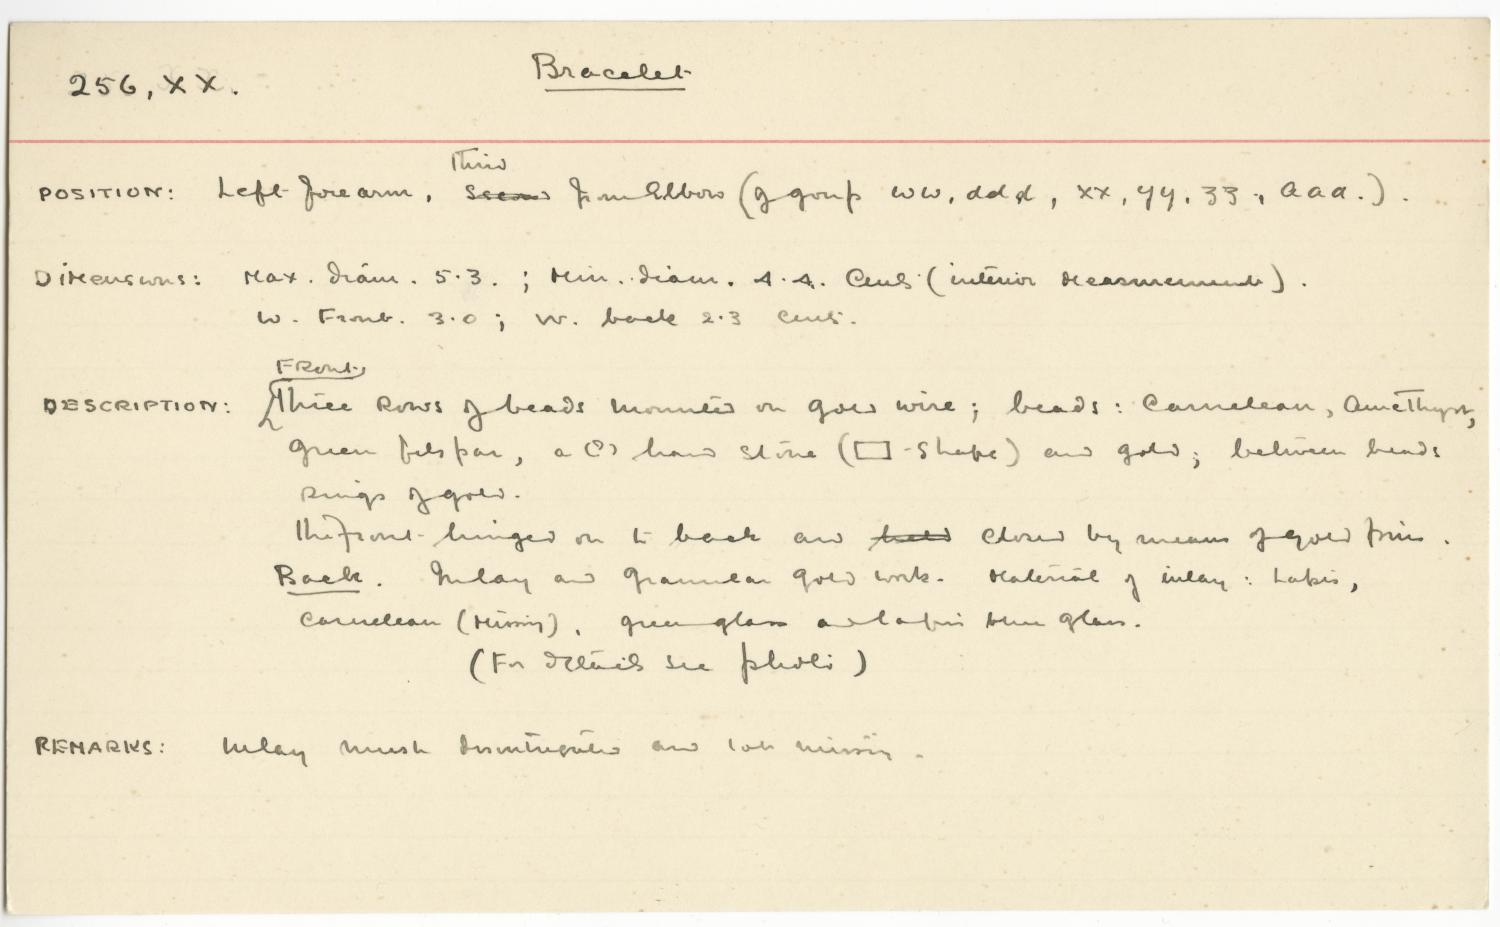 256, XX.
Bracelet
Third
POSITION: Left forearm, Second from Elbow (of group ww, ddd, xx, yy, zz, aaa.).
DIMENSIONS: Max. diam. 5.3. ; Min. diam. 4.4. Cens (interior measurements).
W. Front. 3.0 ; W. back 2.3 Cens.
Front
DESCRIPTION: Three Rows of beads mounted on gold wire ; beads : Carnelean, Amethyst,
green felspar, a (?) hard stone (▭ -shape) and gold ; between beads
Rings of gold.
The front hinged on to back and held closed by means of gold pin.
Back. Inlay and granular gold work. Material of inlay : Lapis,
Carnelean (missing), green glass and lapis blue glass.
(For details see photo)
REMARKS: Inlay much disintegrated and missing.